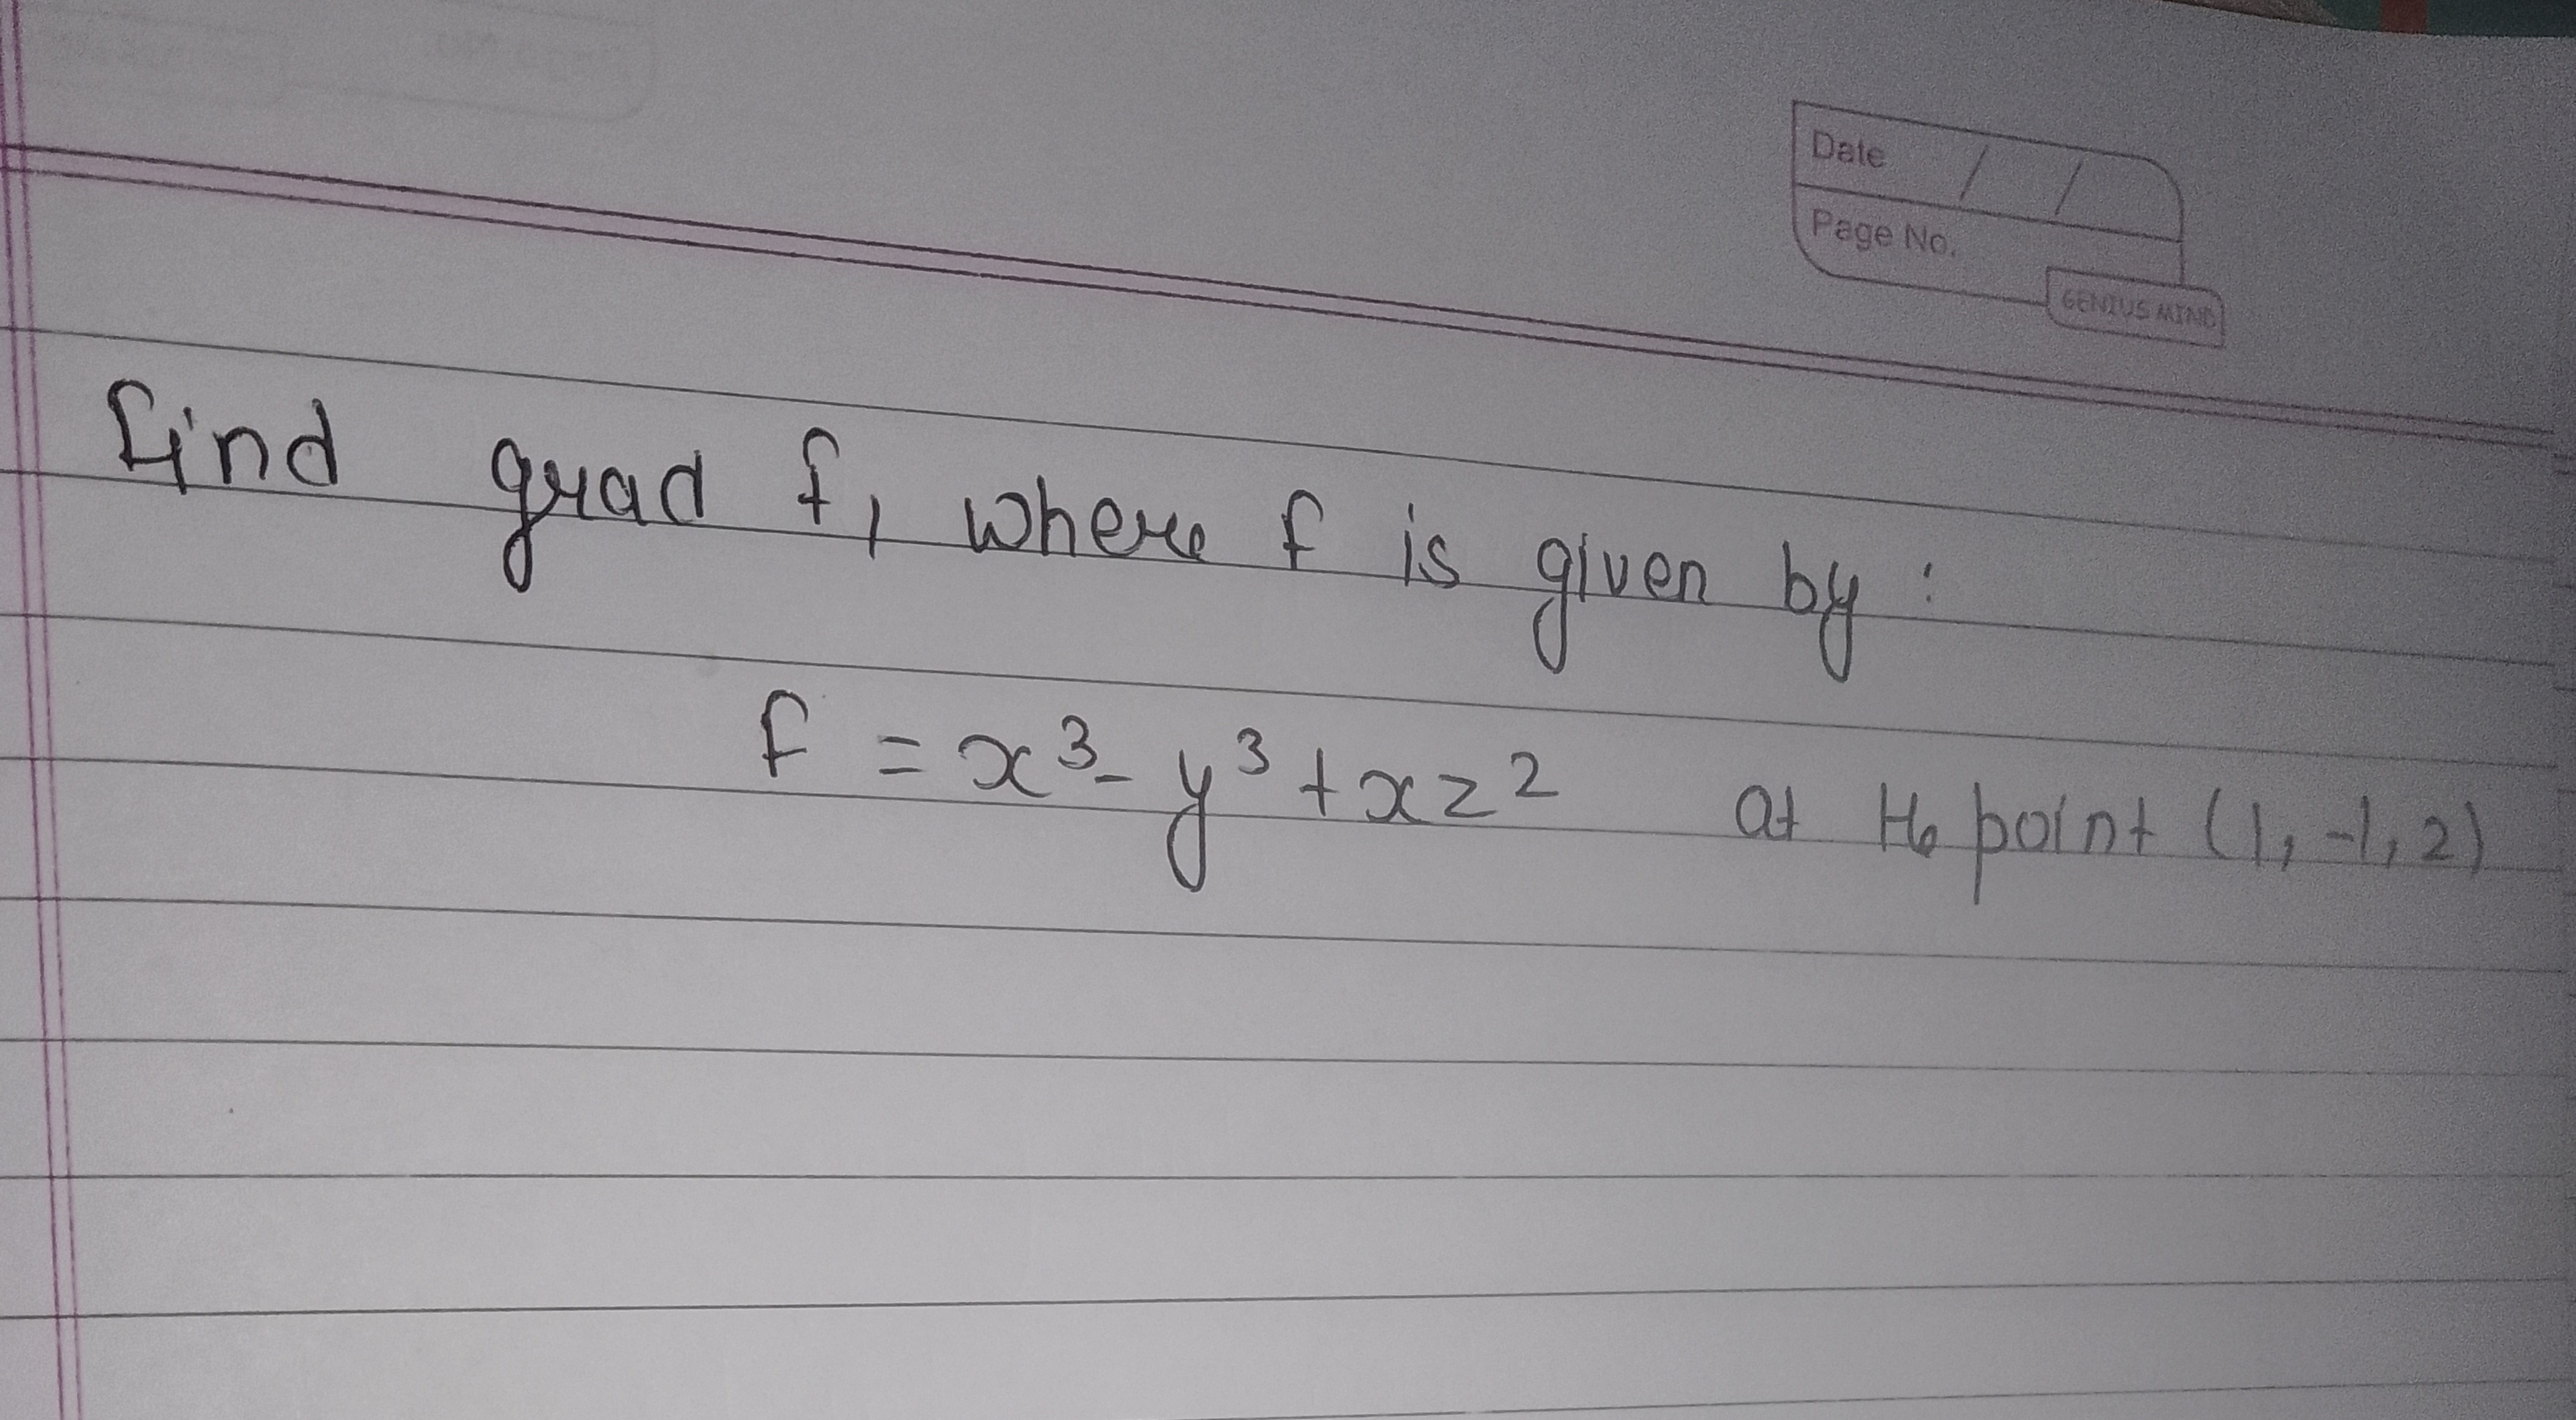 Date / /
Page No.
GENIUS MIND
find grad f, where f is given by :
f = x³ - y³ + xz² at the point (1, -1, 2)